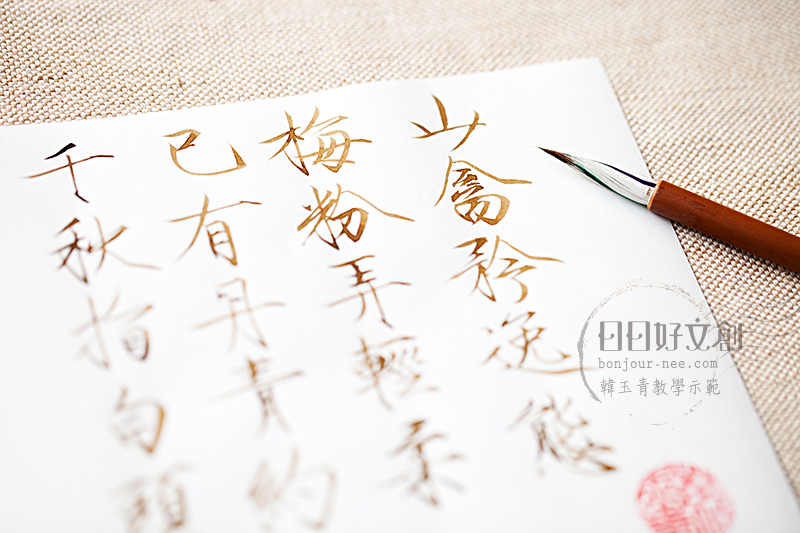 山禽矜逸態
梅粉弄輕柔
已有丹青約
千秋指白頭
日日好文創
bonjour-nee.com
韓玉青教學示範